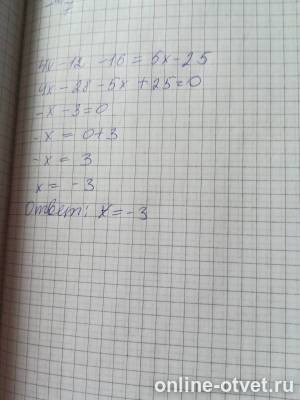 4x - 12 - 16 = 5x - 25
4x - 28 - 5x + 25 = 0
-x - 3 = 0
-x = 0+3
-x = 3
x = -3
Ответ: x = -3
online-otvet.ru